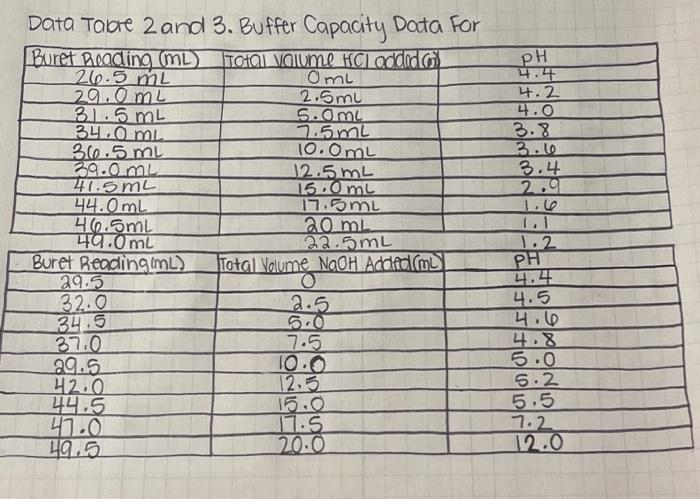 Data Table 2 and 3. Buffer Capacity Data For
Buret Reading (mL) Total Volume HCl added (mL) pH
26.5 mL 0 mL 4.4
29.0 mL 2.5 mL 4.2
31.5 mL 5.0 mL 4.0
34.0 mL 7.5 mL 3.8
36.5 mL 10.0 mL 3.6
39.0 mL 12.5 mL 3.4
41.5 mL 15.0 mL 2.9
44.0 mL 17.5 mL 1.6
46.5 mL 20 mL 1.1
49.0 mL 22.5 mL 1.2
Buret Reading (mL) Total Volume NaOH Added (mL) pH
29.5 0 4.4
32.0 2.5 4.5
34.5 5.0 4.6
37.0 7.5 4.8
29.5 10.0 5.0
42.0 12.5 5.2
44.5 15.0 5.5
47.0 17.5 7.2
49.5 20.0 12.0